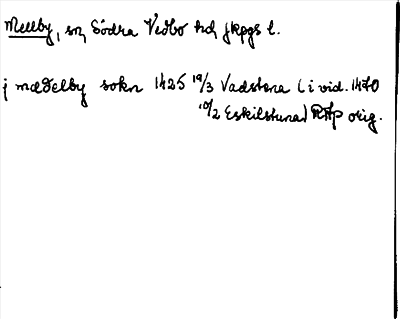 Mellby, sn, Södra Vedbo hd, Jkpgs l.
j mædelby sokn 1425 19/3 Vadstena (i vid. 1470
10/2 Eskilstuna) RAp orig.